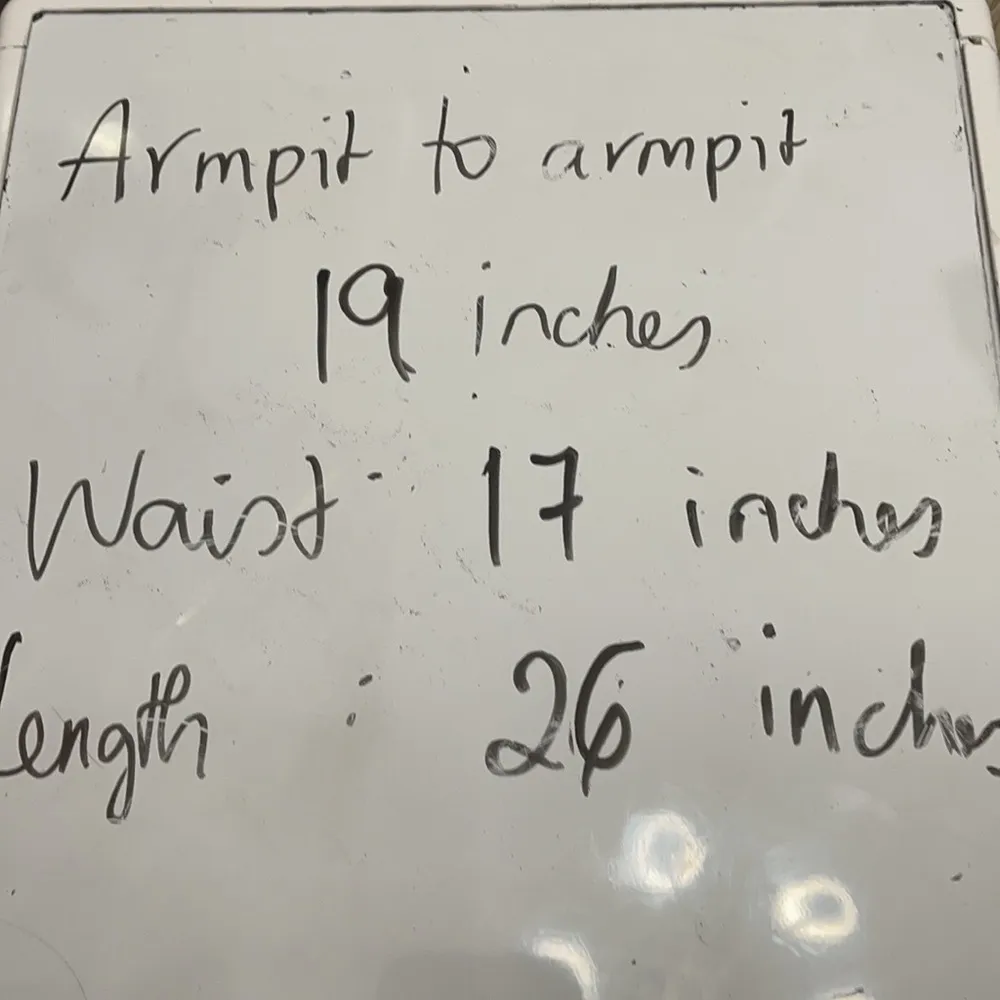 Armpit to armpit
19 inches
Waist: 17 inches
Length : 26 inches